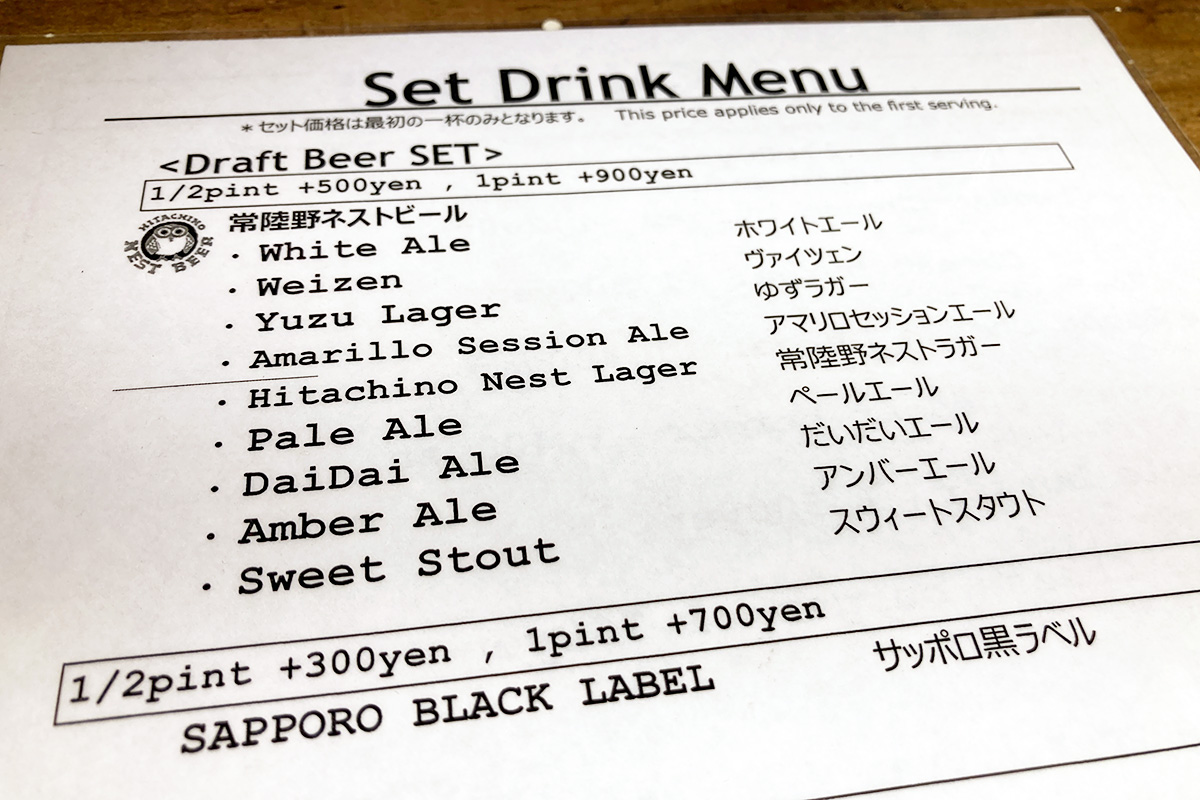 Set Drink Menu
＊セット価格は最初の一杯のみとなります。 This price applies only to the first serving.
<Draft Beer SET>
1/2pint +500yen , 1pint +900yen
HITACHINO NEST BEER
常陸野ネストビール
・White Ale ホワイトエール
・Weizen ヴァイツェン
・Yuzu Lager ゆずラガー
・Amarillo Session Ale アマリロセッションエール
・Hitachino Nest Lager 常陸野ネストラガー
・Pale Ale ペールエール
・DaiDai Ale だいだいエール
・Amber Ale アンバーエール
・Sweet Stout スウィートスタウト
1/2pint +300yen , 1pint +700yen
SAPPORO BLACK LABEL サッポロ黒ラベル